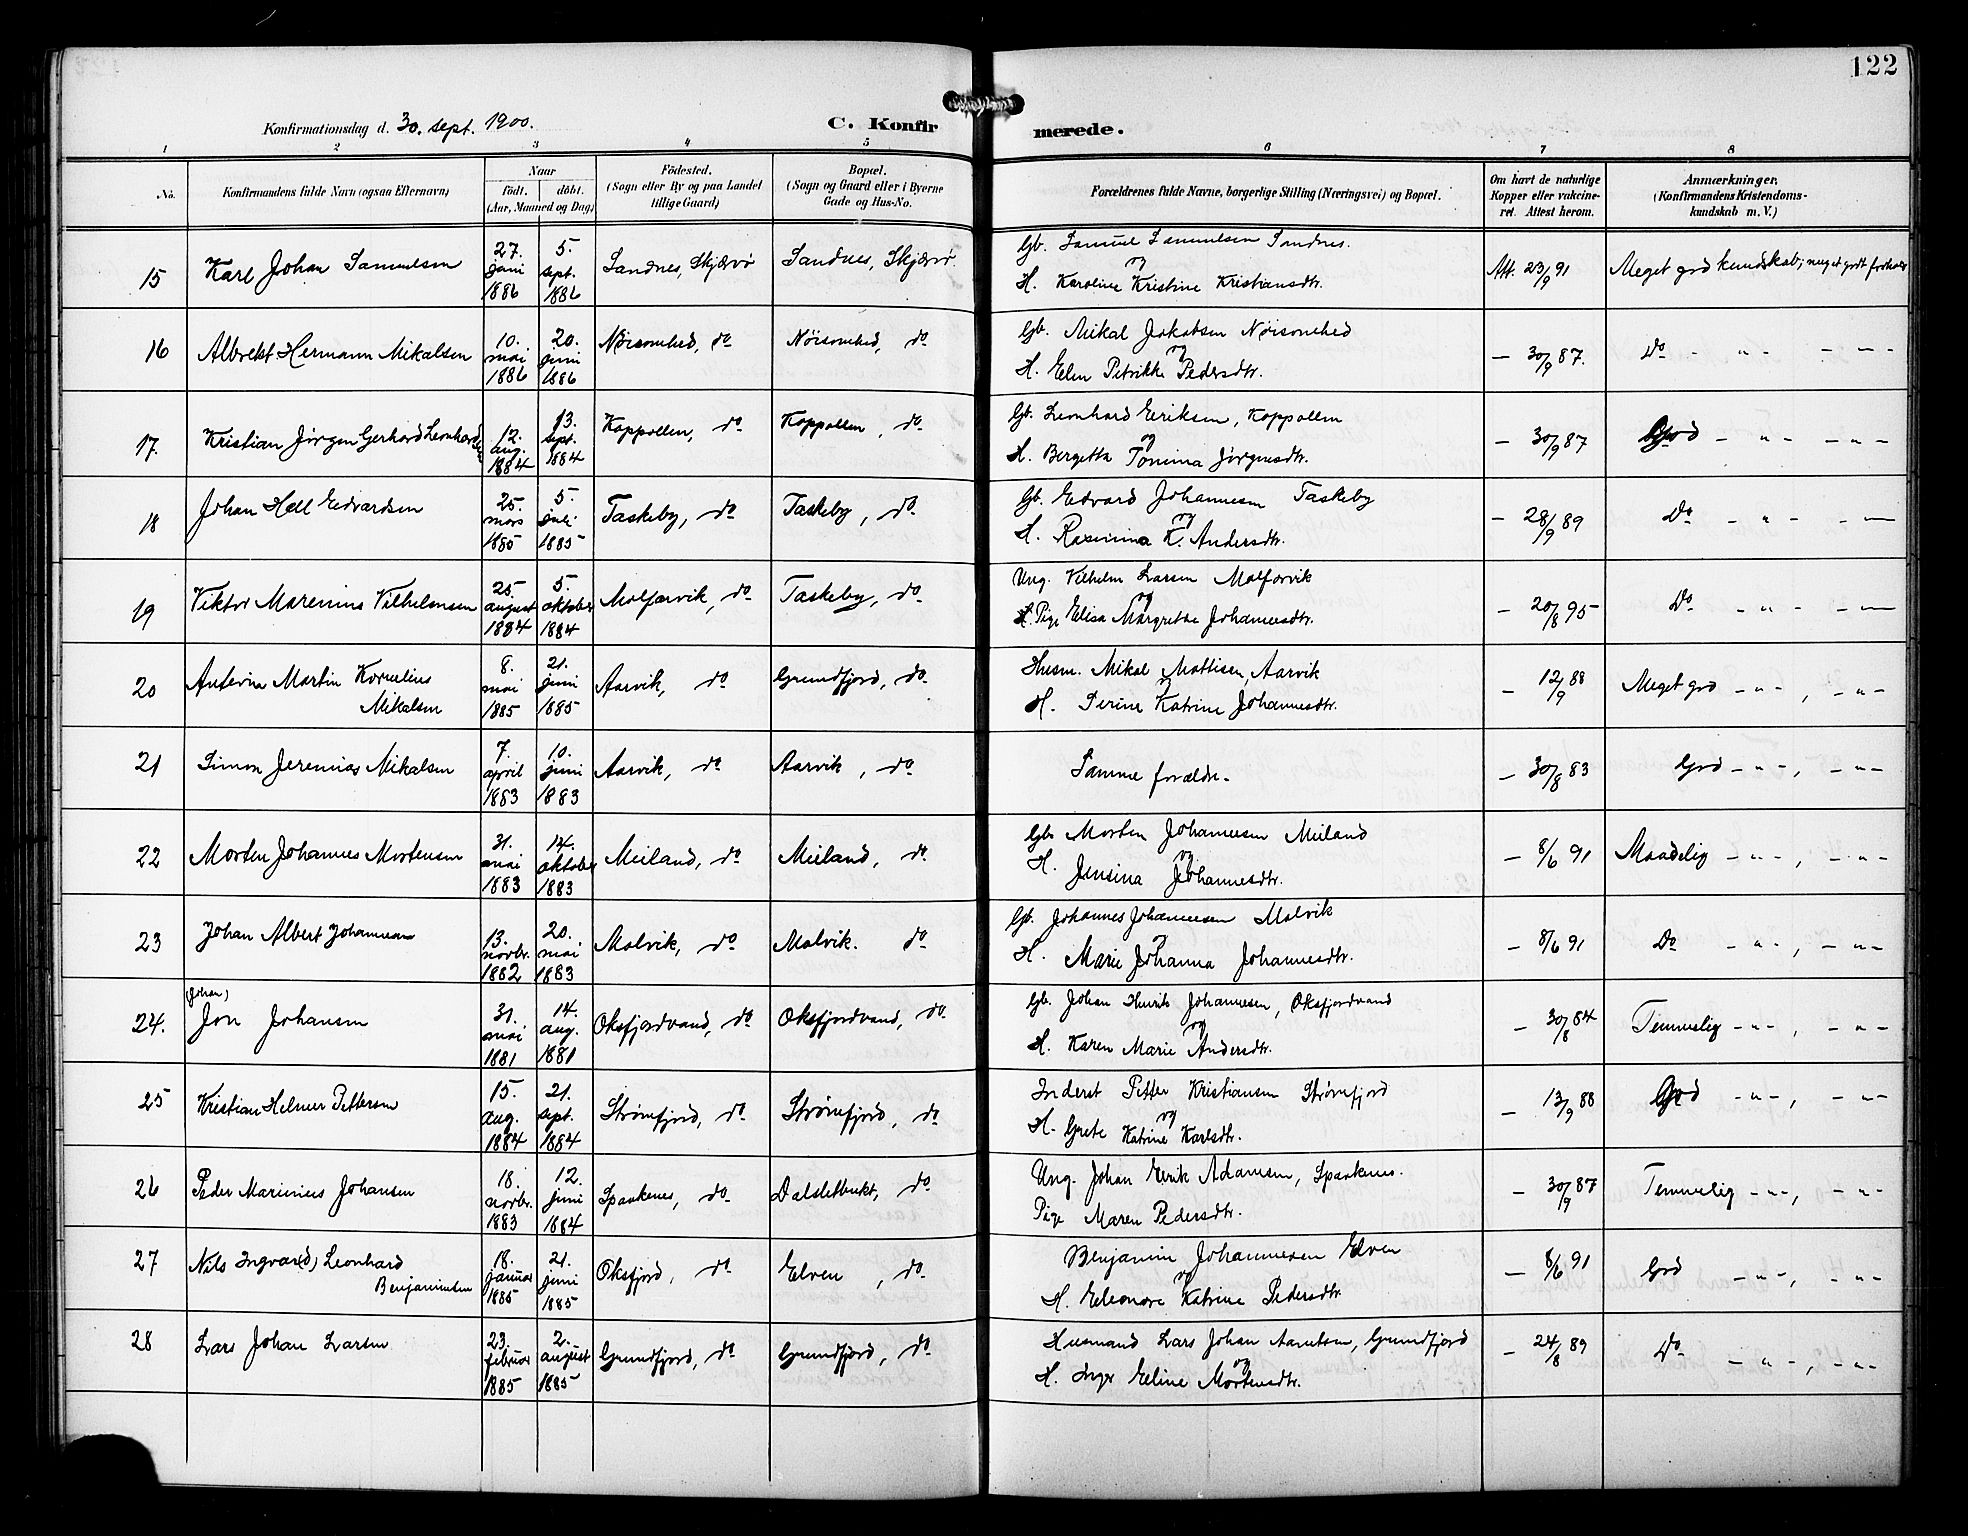 122
Konfirmationsdag d. 30. sept. 1900. C. Konfirmerede.
1 2 3 4 5 6 7 8
No. Konfirmandens fulde Navn (ogsaa Efternavn) Naar født. døbt. (Aar, Maaned og Dag) Födested. (Sogn eller By og paa Landet tillige Gaard) Bopæl. (Sogn og Gaard eller i Byerne Gade og Hus-No. Forældrenes fulde Navne, borgerlige Stilling (Næringsvei) og Bopæl. Om havt de naturlige Kopper eller vakcineret. Attest herom. Anmærkninger. (Konfirmandens Kristendomskundskab m. V.)
15 Karl Johan Samuelsen 27. juni 1886 5. sept. 1886 Sandnes, Skjærvø Sandnes, Skjærvø. Gb. Samuel Samuelsen Sandnes. og H. Karoline Kristine Kristiansdtr. Att. 23/9 91 Meget god kundskab; meget godt forhold
16 Albrekt Hermann Mikalsen 10. mai 1886 20. juni 1886 Nøisomhed, do Nøisomhed, do Gb. Mikal Jakobsen Nøisomhed og H. Elen Petrikke Pedersdtr. — 30/9 87. Do - " - - " -
17. Kristian Jørgen Gerhard Leonhardsen 12. aug. 1884 13. sept. 1884 Koppollen, do Koppollen, do Gb. Leonhard Eriksen, Koppollen og H. Bergetta Tomina Jørgensdtr. — 30/9 87 God - " - - " -
18 Johan Hall Edvardsen 25. mars 1885 5. juli 1885 Taskeby, do Taskeby, do. Gb. Edvard Johannesen Taskeby og H. Rasmina K. Andersdtr. — 28/9 89 Do - " - - " -
19 Viktor Marenius Vilhelmsen 25. august 1884 5. oktober 1884 Molfarvik, do Taskeby, do. Ung. Vilhelm Larsen Molfarvik og Pige Elisa Margrethe Johannesdtr. — 20/8 95 Do - " - - " -
20 Anterin Martin Kornelius Mikalsen 8. mai 1885 21. juni 1885 Aarvik, do Grundfjord, do. Husm. Mikal Mattisen, Aarvik og H. Perine Katrine Johannesdtr. — 12/9 88 Meget god - " -, - " -
21 Simon Jeremias Mikalsen 7. april 1883 10. juni 1883 Aarvik, do Aarvik, do Samme forældre. — 30/8 83 God - " -, - " -
22 Morten Johannes Mortensen 31. mai 1883 14. oktober 1883 Meiland, do Meiland, do Gb. Morten Johannesen Meiland og H. Jensina Johannesdtr. — 8/6 91 Maadelig - " -, - " -
23 Johan Albert Johannesen 13. novbr. 1882 20. mai 1883 Malvik, do Malvik. do Gb. Johannes Johannesen Malvik og H. Marie Johanna Johannesdtr. — 8/6 91 Do - " -, - " -
24. (Johan) Jon Johansen 31. mai 1881 14. aug. 1881 Oksfjordvand, do Oksfjordvand, do Gb. Johan Henrik Johannesen, Oksfjordvand og H. Karen Marie Andersdtr. — 30/8 84 Temmelig - " -, - " -
25 Kristian Helmer Pettersen 15. aug. 1884 21. sept. 1884 Strømfjord, do Strømfjord, do Inderst Petter Kristiansen Strømfjord og H. Grete Katrine Karlsdtr. — 13/9 88 God - " -, - " -
26 Peder Marinius Johansen 18. novbr. 1883 12. juni 1884 Spaakenes, do Dalsletbukt, do Ung. Johan Erik Adamsen, Spaakenes. Pige Maren Pedersdtr. — 30/9 87 Temmelig - " -, - " -
27 Nils Ingvar(d) Leonhard Benjaminsen 18. januar 1885 21. juni 1885 Oksfjord, do Elven, do. Benjamin Johannesen Elven og H. Eleonore Katrine Pedersdtr. — 8/6 91 God - " -, - " -
28 Lars Johan Larsen 23. februar 1885 2. august 1885 Grundfjord, do Grundfjord, do Husmand Lars Johan Aamtsen, Grundfjord og H. Inger Eline Mortensdtr. — 24/8 89 Do - " -, - " -